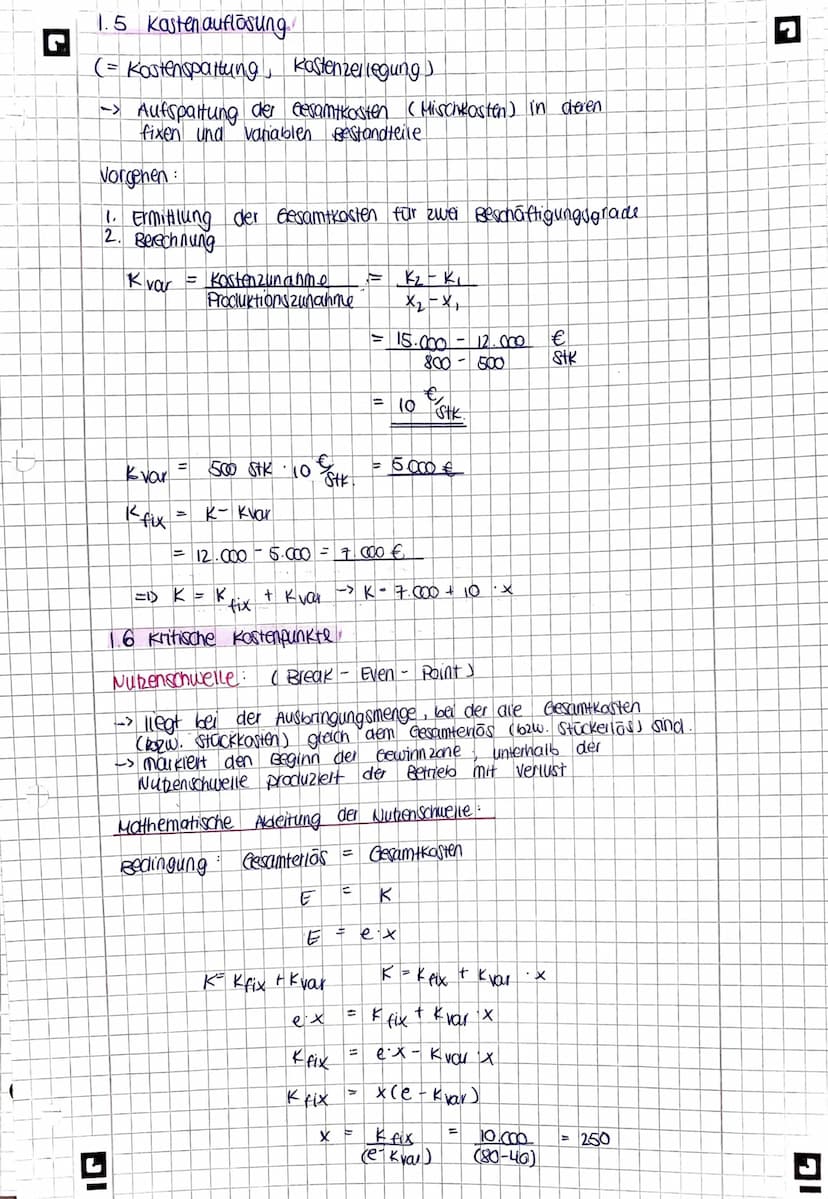 1.5 Kostenauflösung
(= Kostenspaltung, Kostenzerlegung)
-> Aufspaltung der Gesamtkosten (Mischkosten) in deren
fixen und variablen Bestandteile
Vorgehen:
1. Ermittlung der Gesamtkosten für zwei Beschäftigungsgrade
2. Berechnung
K var = Kostenzunahme / Produktionszunahme = K₂ - K₁ / X₂ - X₁
= 15.000 - 12.000 / 800 - 500 € / Stk
= 10 €/Stk.
Kvar = 500 Stk · 10 €/Stk. = 5.000 €
Kfix = K - Kvar
= 12.000 - 5.000 = 7.000 €
=> K = Kfix + Kvar -> K = 7.000 + 10 · x
1.6 Kritische Kostenpunkte
Nutzenschwelle: (Break - Even - Point)
-> liegt bei der Ausbringungsmenge, bei der die Gesamtkosten
(bzw. Stückkosten) gleich dem Gesamterlös (bzw. Stückerlös) sind.
-> markiert den Beginn der Gewinnzone; unterhalb der
Nutzenschwelle produziert der Betrieb mit Verlust
Mathematische Ableitung der Nutzenschwelle:
Bedingung: Gesamterlös = Gesamtkosten
E = K
E = e·x
K = Kfix + Kvar K = Kfix + Kvar · x
e·x = Kfix + Kvar · x
Kfix = e·x - Kvar · x
Kfix = x(e - Kvar)
x = Kfix / (e - Kvar) = 10.000 / (80-40) = 250